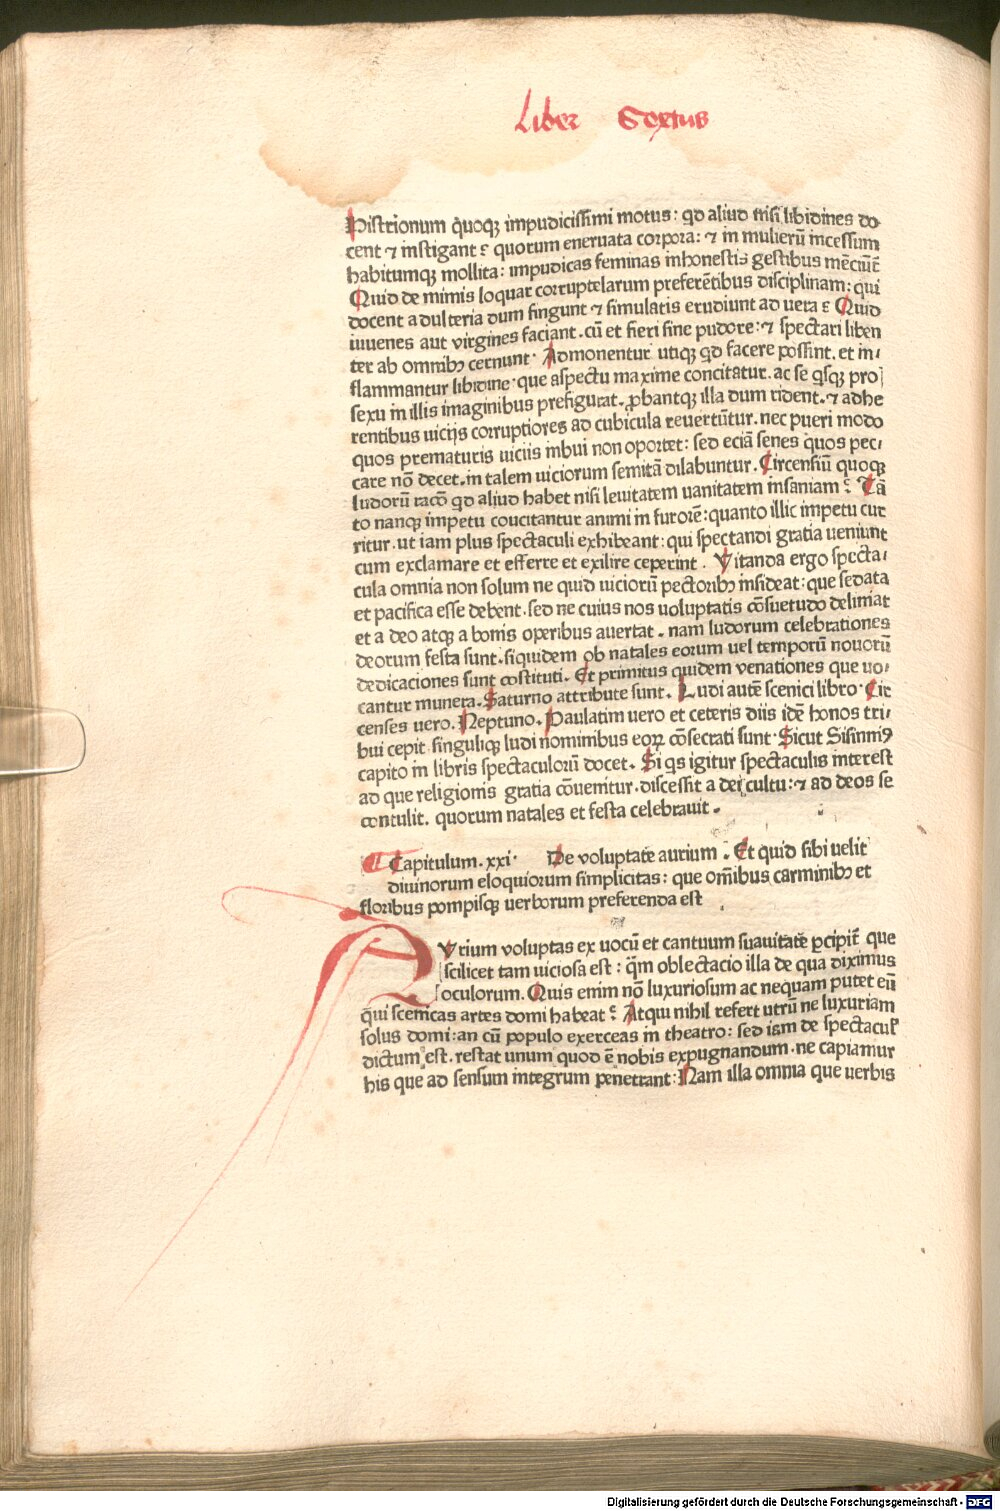 Liber Sextus
Histrionum quoqꝫ impudicissimi motus: qd aliud nisi libidines do-
cent ⁊ instigant ? quorum eneruata corpora: ⁊ in mulierū incessum
habitumqꝫ mollita: impudicas feminas inhonestis gestibus mēciūt̄
Quid de mimis loquar corruptelarum preferētibus disciplinam: qui
docent adulteria dum fingunt ⁊ simulatis erudiunt ad uera ? Quid
iuuenes aut virgines faciant. cū et fieri sine pudore: ⁊ spectari liben
ter ab omnibꝫ cernunt. Admonentur utiqꝫ qd facere possint. et in-
flammantur libidine. que aspectu maxime concitatur. ac se qsqꝫ pro
sexu in illis imaginibus prefigurat. ꝓbantqꝫ illa dum rident. ⁊ adhe
rentibus uicijs corruptiores ad cubicula reuertūtur. nec pueri modo
quos prematuris uiciis inbui non oportet: sed eciā senes quos pec-
care nō decet. in talem uiciorum semitā dilabuntur. Circensiū quoqꝫ
ludorū racō qd aliud habet nisi leuitatem uanitatem insaniam ? Tā
to nanqꝫ impetu coucitantur animi in furorē: quanto illic impetu cur
ritur. ut iam plus spectaculi exhibeant: qui spectandi gratia ueniunt
cum exclamare et efferre et exilire ceperint. Vitanda ergo specta-
cula omnia non solum ne quid uiciorū pectoribꝫ insideat: que sedata
et pacifica esse debent. sed ne cuius nos uoluptatis cōsuetudo deliniat
et a deo atqꝫ a bonis operibus auertat. nam ludorum celebrationes
deorum festa sunt. siquidem ob natales eorum uel temporū nouorū
dedicaciones sunt cōstituti. Et primitus quidem venationes que uo-
cantur munera. Saturno attribute sunt. Ludi autē scenici libro. Cir
censes uero. Neptuno. Paulatim uero et ceteris diis idē honos tri-
bui cepit singuliqꝫ ludi nominibus eoꝝ cōsecrati sunt. Sicut Sisinniꝰ
capito in libris spectaculorū docet. Si qs igitur spectaculis interest
ad que religionis gratia cōuenitur. discessit a dei cultu: ⁊ ad deos se
contulit. quorum natales et festa celebrauit.
Capitulum. xxi. De voluptate aurium. Et quid sibi uelit
diuinorum eloquiorum simplicitas: que om̄ibus carminibꝫ et
floribus pompisqꝫ uerborum preferenda est
AVrium voluptas ex uocū et cantuum suauitate ꝑcipit̄ que
scilicet tam uiciosa est: q̄m oblectacio illa de qua diximus
oculorum. Quis enim nō luxuriosum ac nequam putet eū
qui scenicas artes domi habeat ? Atqui nihil refert utrū ne luxuriam
solus domi: an cū populo exerceas in theatro: sed iam de spectacul̄
dictum est. restat unum quod ē nobis expugnandum. ne capiamur
his que ad sensum integrum penetrant: Nam illa omnia que uerbis
Digitalisierung gefördert durch die Deutsche Forschungsgemeinschaft - DFG